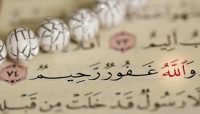 أَلِيمٌ ٧٣
وَٱللَّهُ غَفُورٌ رَّحِيمٌ ٧٤
رَسُولٌ قَدْ خَلَتْ مِن قَبْلِهِ